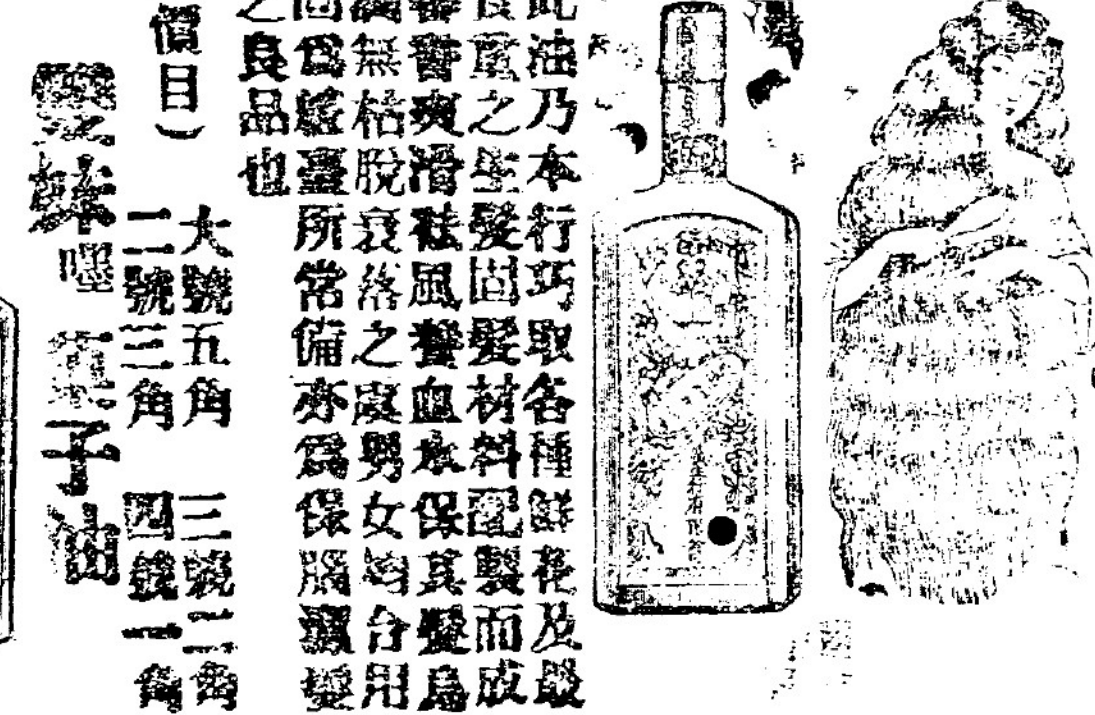 此油乃本行巧取各種鮮花及最
重之生髮固髮材料配製而成
爽滑祛風養血永保其髮烏
潤無枯脫衰落之虞男女均合用
固為粧臺所常備亦為保腦護髮
之良品也
價目）
大號五角 三號二角
二號三角 四號一角
雙妹嘜 子油